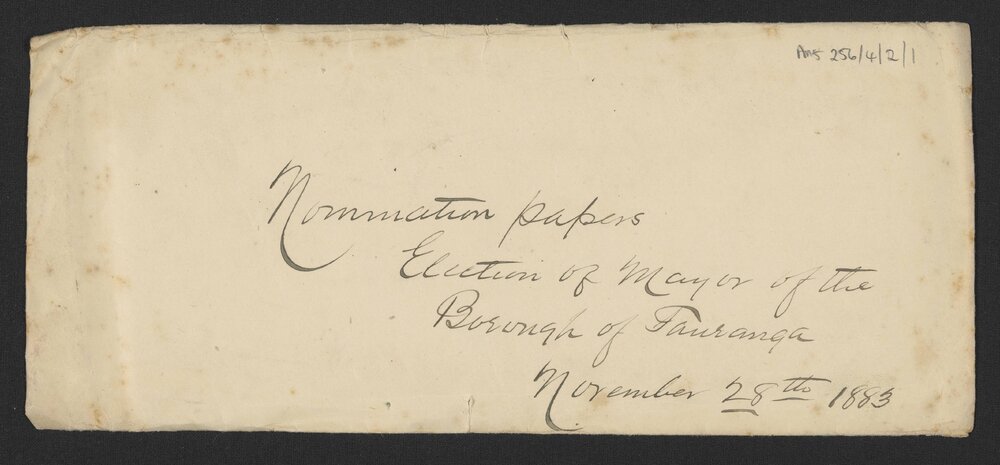 Ams 256/4/2/1
Nomination papers
Election of Mayor of the
Borough of Tauranga
November 28th 1883